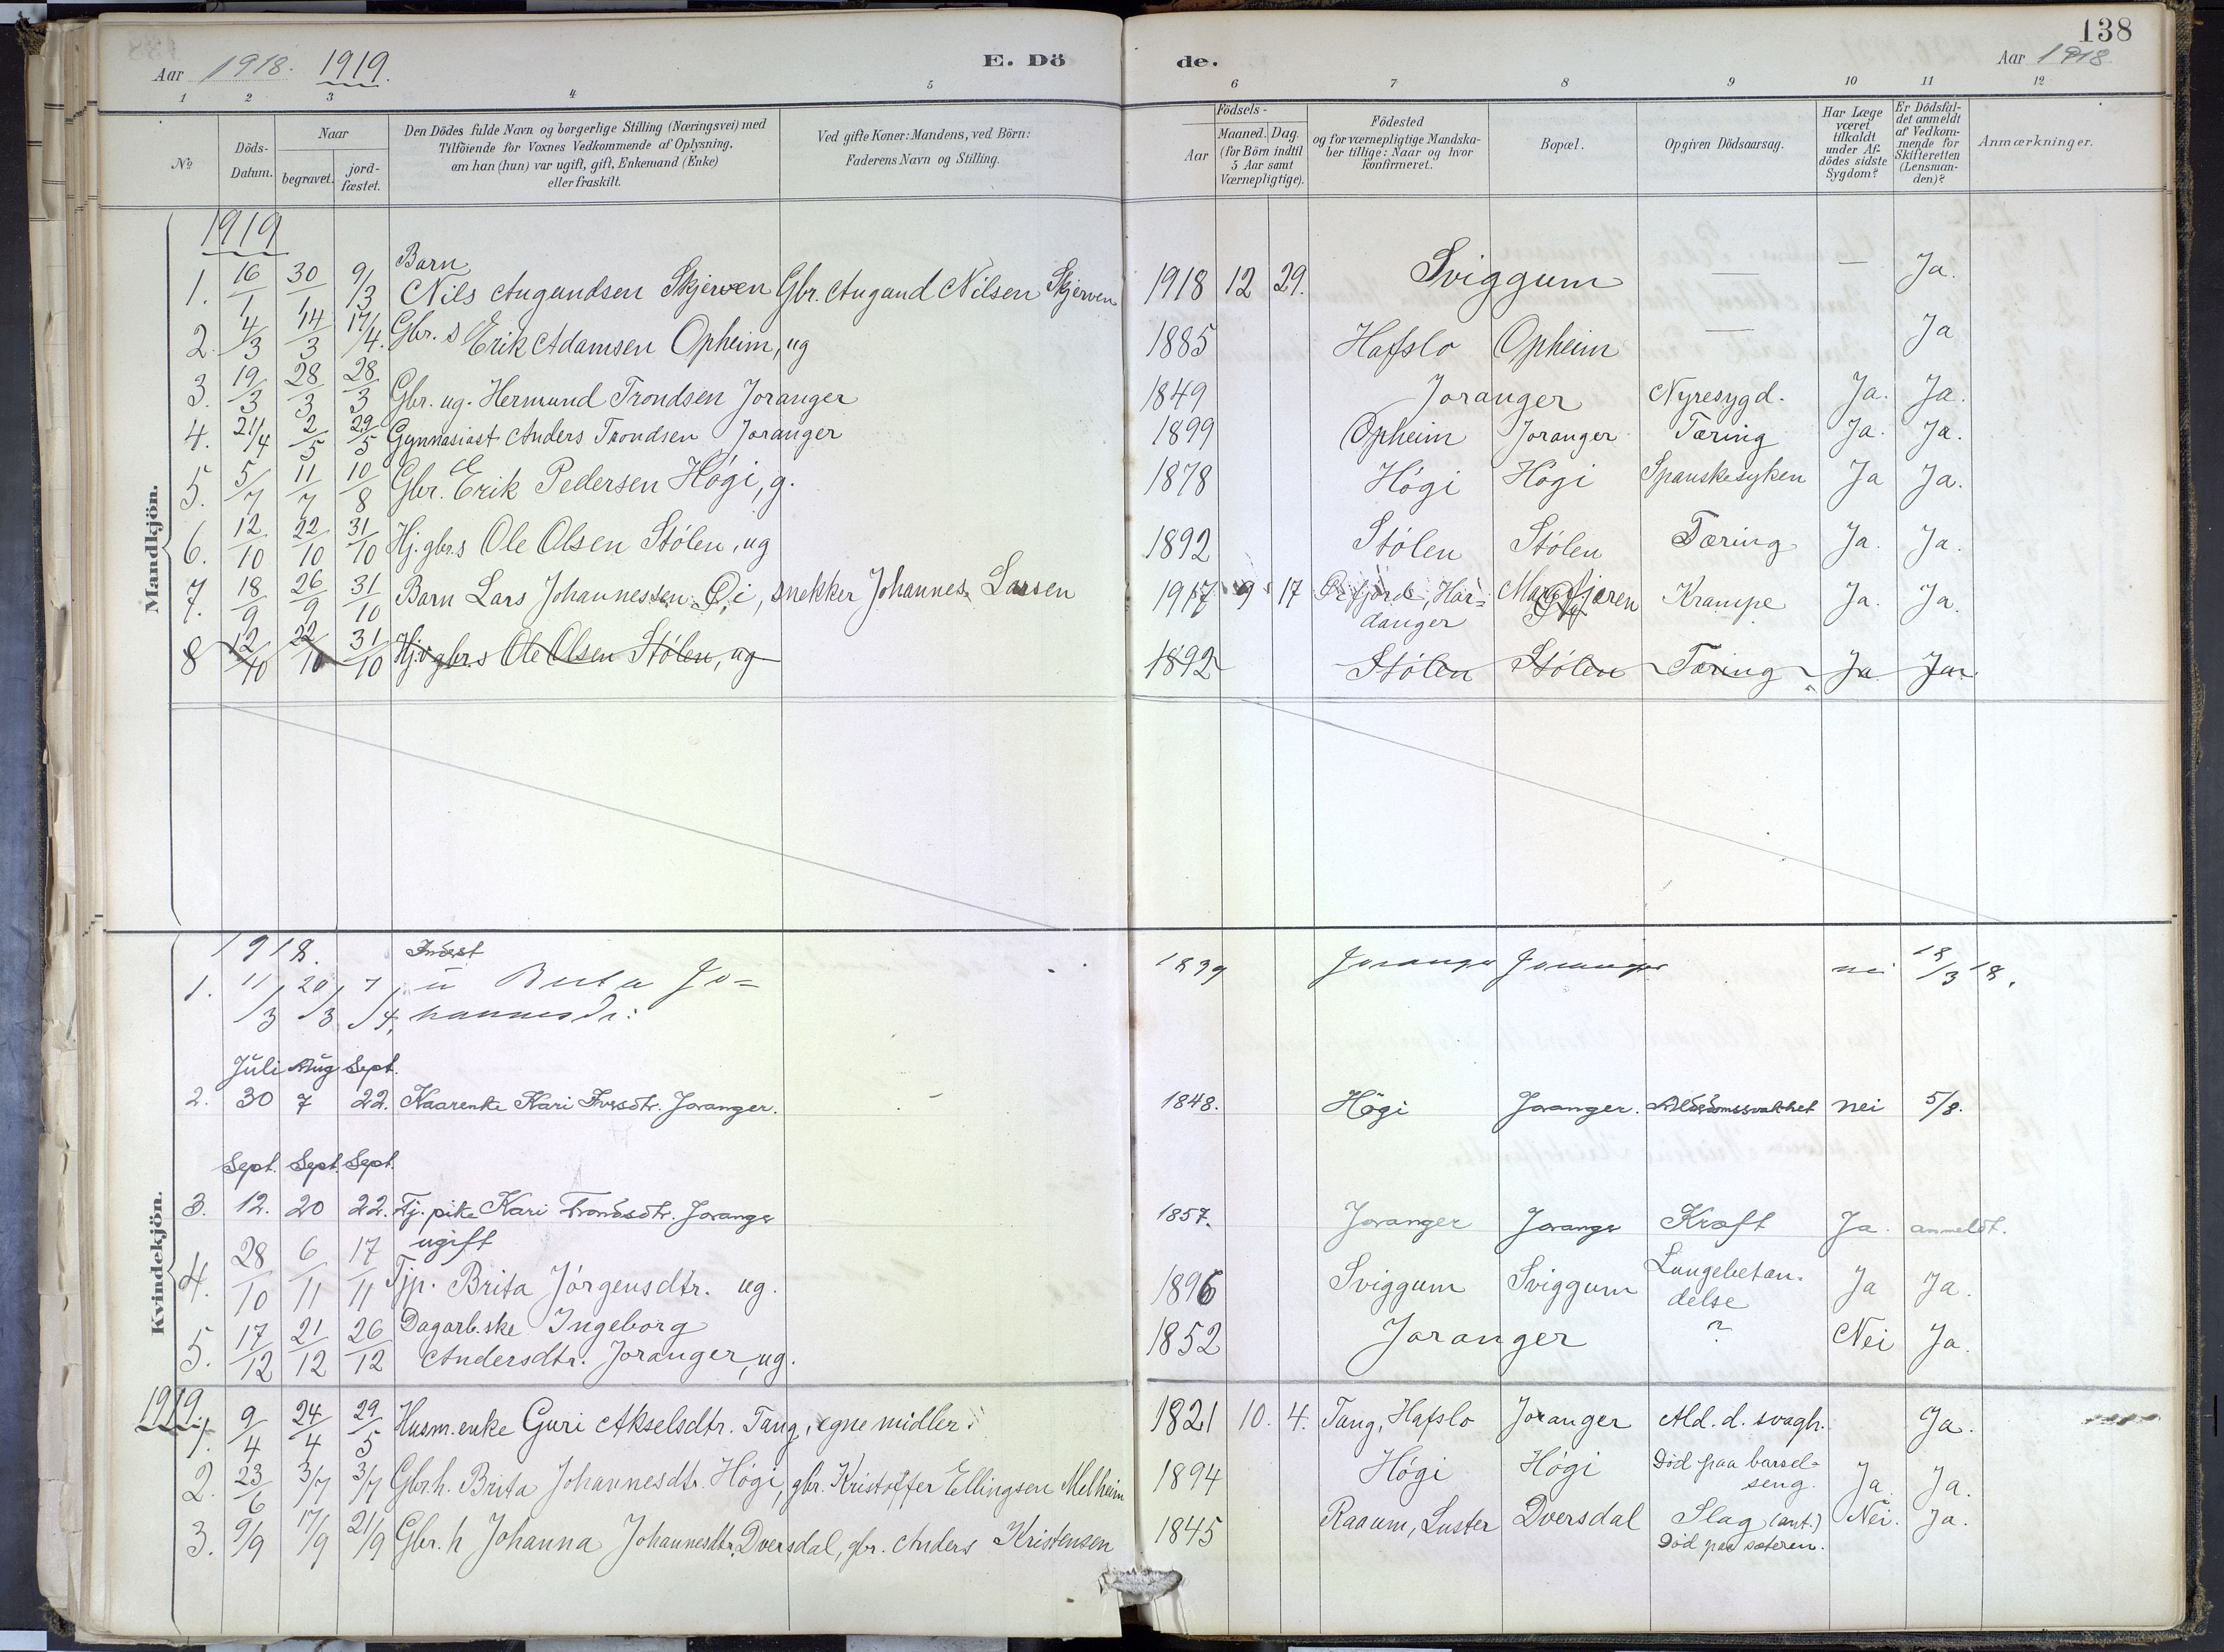 138
Aar 1918. 1919. E. Dö de. Aar 1918.
1 2 3 4 5 6 7 8 9 10 11 12
No.
Döds-Datum.
Naar
begravet. jord-fæstet.
Den Dödes fulde Navn og borgerlige Stilling (Næringsvei) med
Tilföiende for Voxnes Vedkommende af Oplysning,
om han (hun) var ugift, gift, Enkemand (Enke)
eller fraskilt.
Ved gifte Koner: Mandens, ved Börn:
Faderens Navn og Stilling.
Födsels-
Aar Maaned. Dag.
(for Börn indtil
5 Aar samt
Værnepligtige).
Födested
og for værnepligtige Mandska-
ber tillige: Naar og hvor
konfirmeret.
Bopæl.
Opgiven Dödsaarsag.
Har Læge
været
tilkaldt
under Af-
dödes sidste
Sygdom?
Er Dödsfal-
det anmeldt
af Vedkom-
mende for
Skifteretten
(Lensman-
den)?
Anmærkninger.
Mandkjön.
1919
Barn
1. 16/1 30/1 9/3 Nils Augundsen Skjerven Gbr. Augund Nilsen Skjerven 1918 12 29. Sviggum — — Ja.
2. 4/3 14/3 17/4. Gbr. s Erik Adamsen Opheim, ug 1885 Hafslo Opheim — Ja
3. 19/3 28/3 28/3 Gbr. ug. Hermund Trondsen Joranger 1849 Joranger Nyresygd. Ja. Ja.
4. 21/4 2/5 29/5 Gymnasiast Anders Trondsen Joranger 1899 Opheim Joranger Tæring Ja. Ja.
5. 5/7 11/7 10/8 Gbr. Erik Pedersen Högi, g. 1878 Högi Högi Spanskesyken Ja Ja.
6. 12/10 22/10 31/10 Hj. gbr.s Ole Olsen Stölen, ug 1892 Stölen Stölen Tæring Ja. Ja.
7. 18/9 26/9 31/10 Barn Lars Johannessen Øi, snekker Johannes Larsen 1917 9 17 Hardanger Krampe Ja. Ja.
8 12/10 22/10 31/10 Hj. gbr.s Ole Olsen Stölen, ug 1892 Stölen Stölen Tæring Ja Ja.
Kvindekjön.
1918.
1. 11/3 20/3 7/4. Brita Jo=
hannesdr: 1839 Joranger Joranger nei 18/3 18.
Juli Aug Sept.
2. 30 7 22. Kaarenke Kari Iversdtr. Joranger. - 1848. Högi Joranger. Alderdomssvakhet nei 5/8.
Sept. Sept. Sept.
3. 12. 20 22. Tj. pike Kari Trondsdtr. Joranger 1857. Joranger Joranger Kræft Ja. anmeldt.
ugift
4. 28/10 6/11 17/11 Tjp. Brita Jörgensdtr. ug. 1896 Sviggum Sviggum Lungebetan-
delse Ja Ja.
5. 17/12 21/12 26/12 Dagarb.ske Ingeborg
Andersdtr. Joranger, ug. 1852 Joranger ? Nei Ja.
1919.
1. 9/4 24/4 29/5 Husm. enke Guri Akselsdtr. Tang, egne midler. 1821 10. 4. Tang, Hafslo Joranger Ald. d. svagh. Ja.
2. 23/6 3/7 3/7 Gbr.h. Brita Johannesdtr. Högi, gbr. Kristoffer Ellingsen Melheim 1894 Högi Högi Död paa barsel-
seng. Ja. Ja.
3. 9/9 17/9 21/9 Gbr. h Johanna Johannesdtr. Dversdal, gbr. Anders Kristensen 1845 Raaum, Luster Dversdal Slag (ant.) Nei. Ja.
Död paa sæteren.